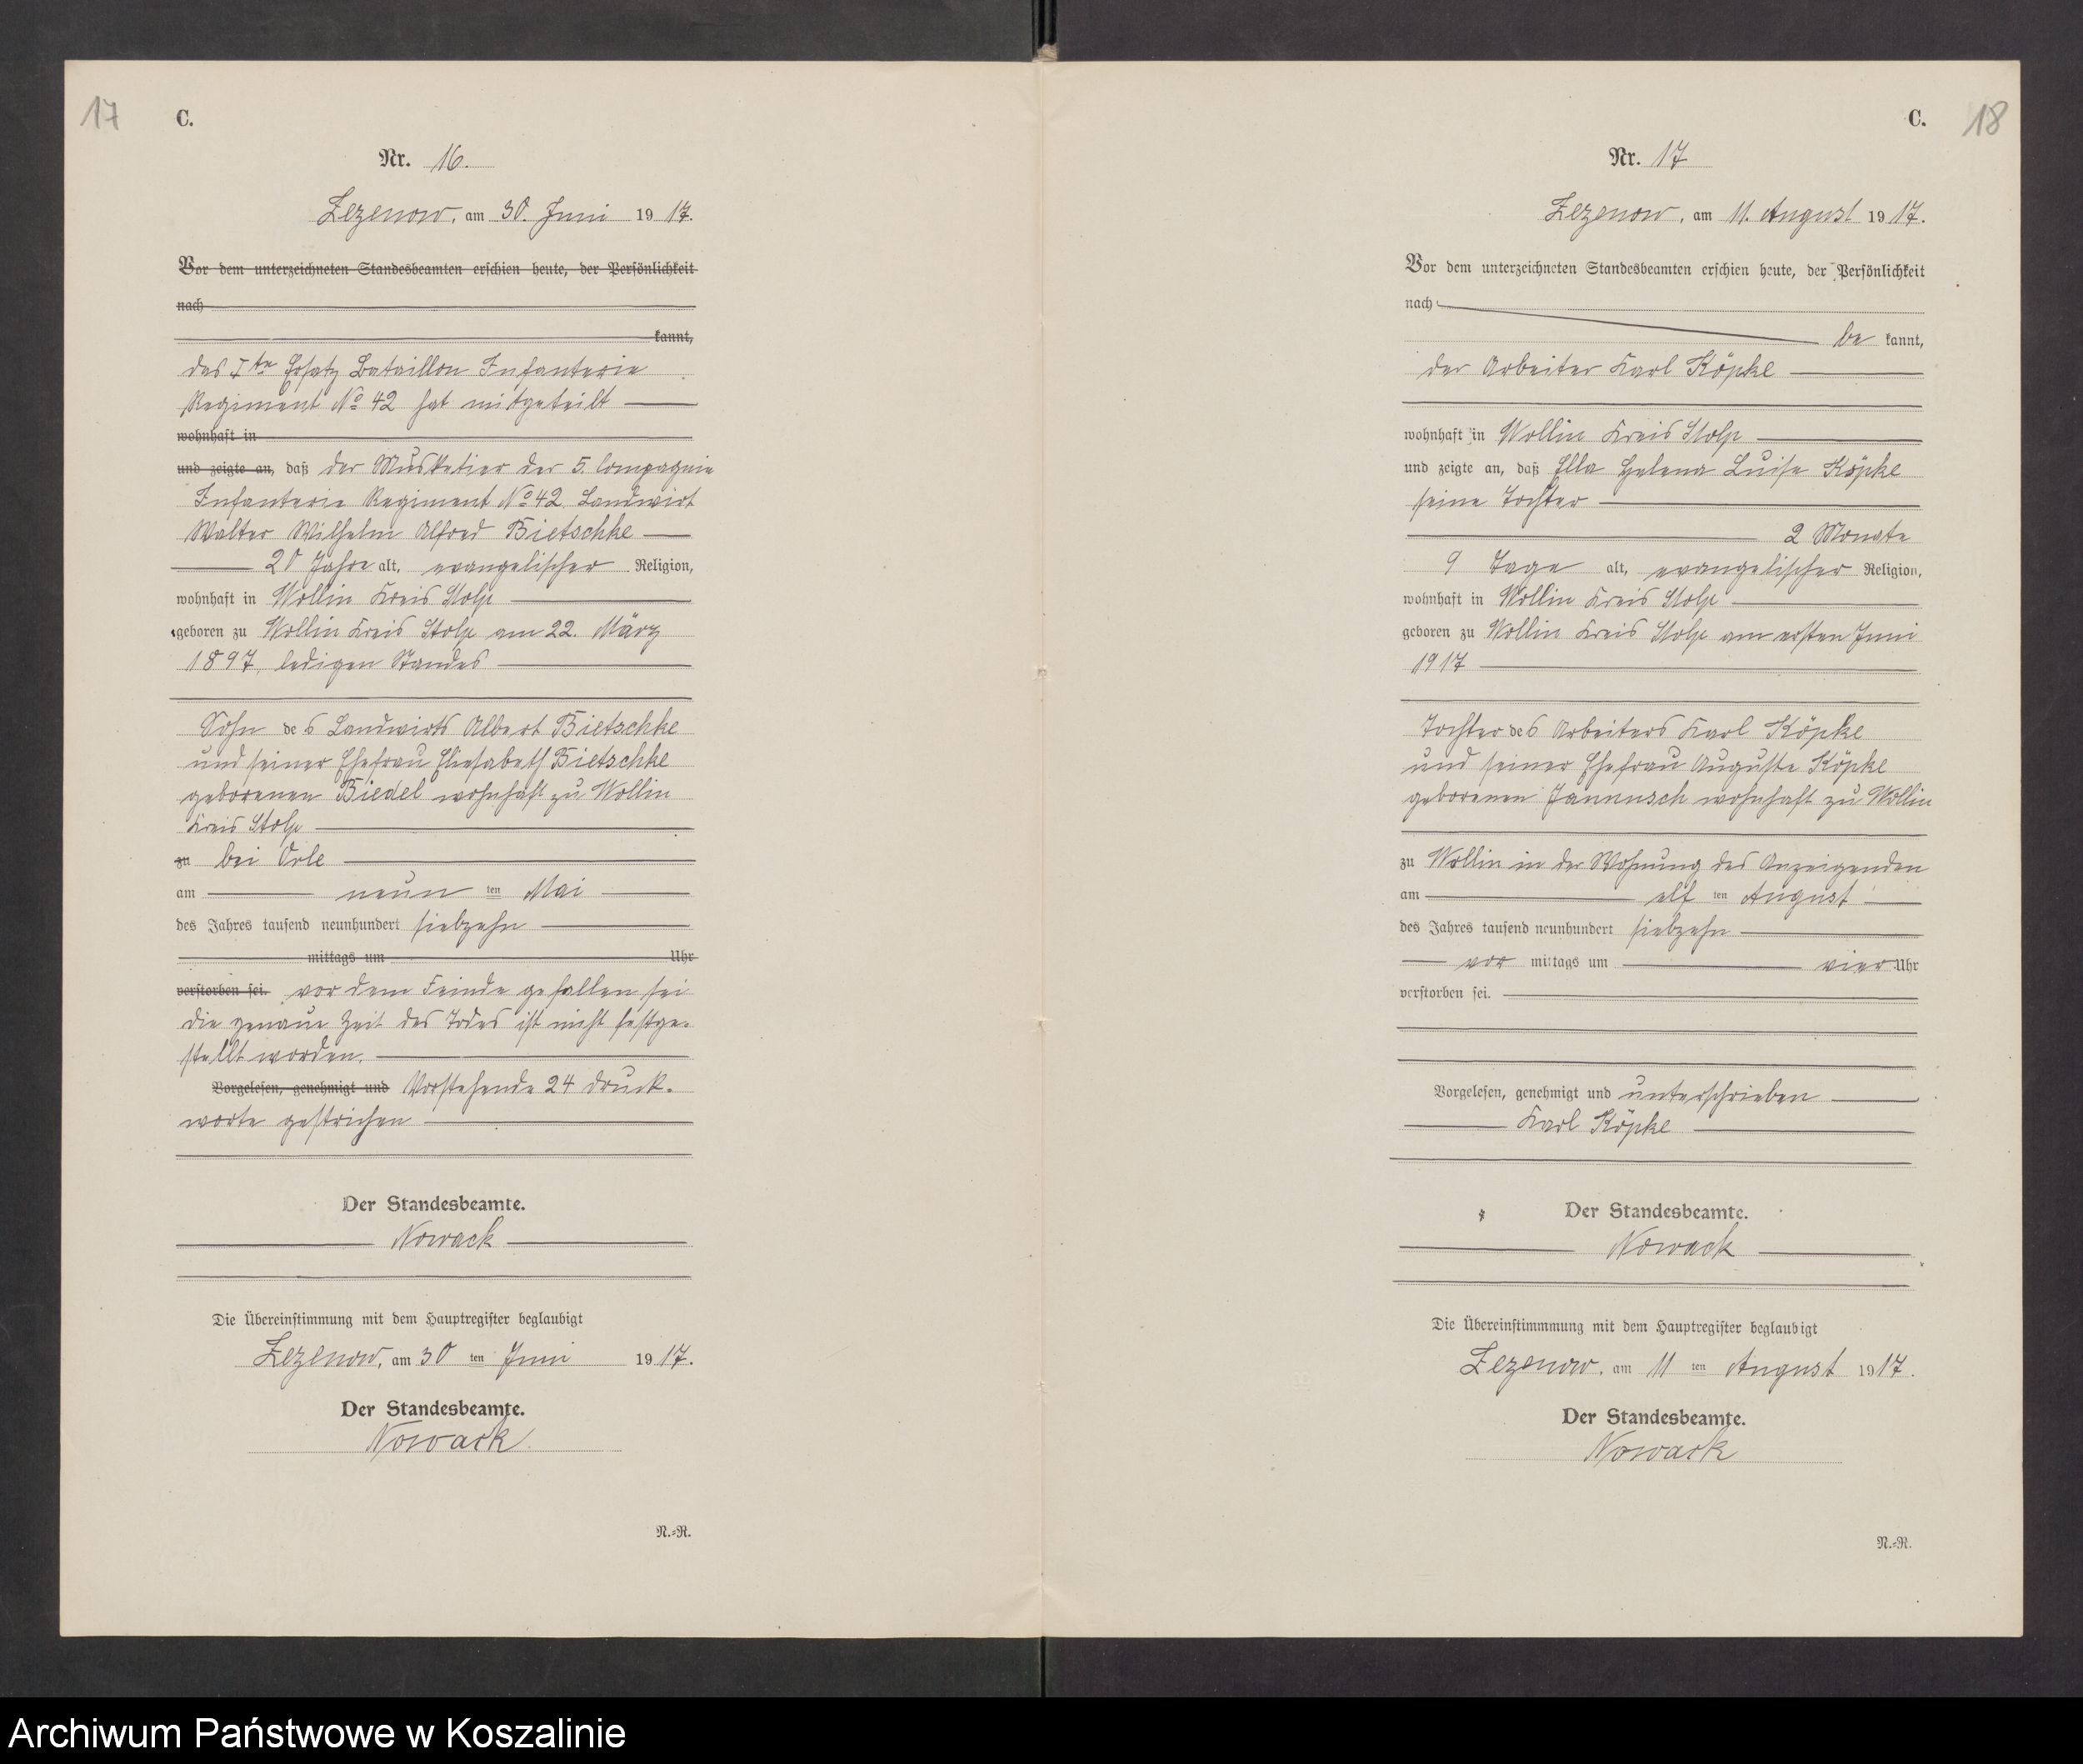 17
C.
Nr. 16.
Zezenow, am 30. Juni 1917.
Vor dem unterzeichneten Standesbeamten erschien heute, der Persönlichkeit
nach
kannt,
das Ite Ersatz Bataillon Infanterie
Regiment No 42 hat mitgeteilt
wohnhaft in
und zeigte an, daß der Musketier der 5. Compagnie
Infanterie Regiment No 42. Landwirt
Walter Wilhelm Alfred Bietschke
20 Jahre alt, evangelischer Religion,
wohnhaft in Wollin Kreis Stolp
geboren zu Wollin Kreis Stolp am 22. März
1897, ledigen Standes
Sohn des Landwirts Albert Bietschke
und seiner Ehefrau Eliesabeth Bietschke
geborenen Biedel wohnhaft zu Wollin
Kreis Stolp
zu bei Orle
am neun ten Mai
des Jahres tausend neunhundert siebzehn
mittags um Uhr
verstorben sei. vor dem Feinde gefallen sei
die genaue Zeit des Todes ist nicht festge-
stellt worden.
Vorgelesen, genehmigt und Vorstehende 24 Druck-
worte gestrichen
Der Standesbeamte.
Nowack
Die Übereinstimmung mit dem Hauptregister beglaubigt
Zezenow, am 30 ten Juni 1917.
Der Standesbeamte.
Nowack
N.=R.
C.
18
Nr. 17
Zezenow, am 11. August 1917.
Vor dem unterzeichneten Standesbeamten erschien heute, der Persönlichkeit
nach
be kannt,
der Arbeiter Karl Köpke
wohnhaft in Wollin Kreis Stolp
und zeigte an, daß Ella Helena Luise Köpke
seine Tochter
2 Monate
9 Tage alt, evangelischer Religion,
wohnhaft in Wollin Kreis Stolp
geboren zu Wollin Kreis Stolp am ersten Juni
1917
Tochter des Arbeiters Karl Köpke
und seiner Ehefrau Auguste Köpke
geborenen Jannusch wohnhaft zu Wollin
zu Wollin in der Wohnung des Anzeigenden
am elf ten August
des Jahres tausend neunhundert siebzehn
vor mittags um vier Uhr
verstorben sei.
Vorgelesen, genehmigt und unterschrieben
Karl Köpke
Der Standesbeamte.
Nowack
Die Übereinstimmmung mit dem Hauptregister beglaubigt
Zezenow, am 11 ten August 1917.
Der Standesbeamte.
Nowack
N.=R.
Archiwum Państwowe w Koszalinie